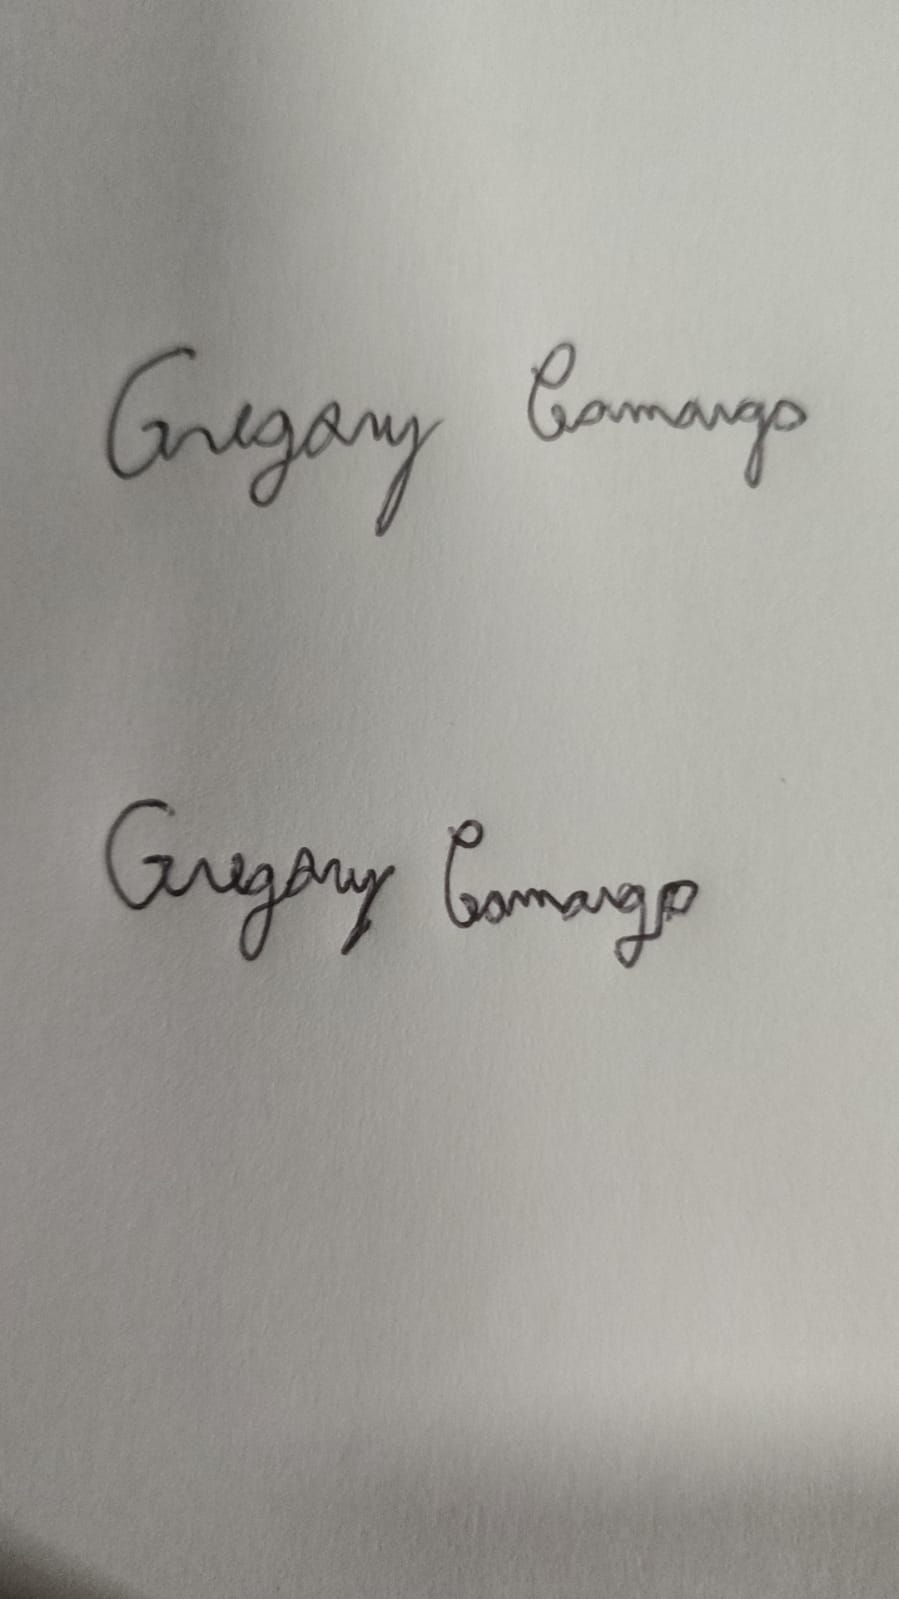 Gregory Camargo
Gregory Camargo